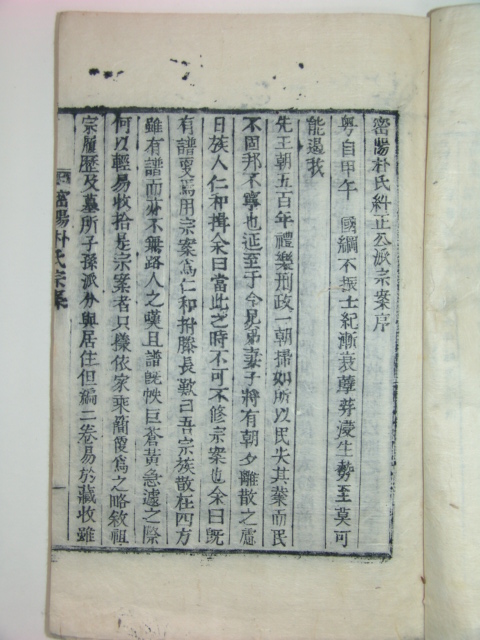 密陽朴氏糾正公派宗案序
粤自甲午 國綱不振士紀漸衰孽莽浸生勢至莫可
能遏哉
先王朝五百年禮樂刑政一朝掃如所以民失其業而民
不固邦不寧也延至于今兄弟妻子將有朝夕離散之慮
日族人仁和揖余曰當此之時不可不修宗案也余曰旣
有譜更焉用宗案爲仁和拊髀長歎曰吾宗族散在四方
雖有譜而亦不無路人之嘆且譜旣帙巨蒼黃急遽之際
何以輕易收拾是宗案者只據依家乘簡霞爲之略敘祖
宗履歷及墓所子孫派分與居住但編二卷易於藏收雖
密陽朴氏宗案